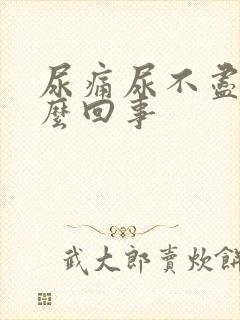 尿痛尿不盡
麼回事
武大郎賣炊餅